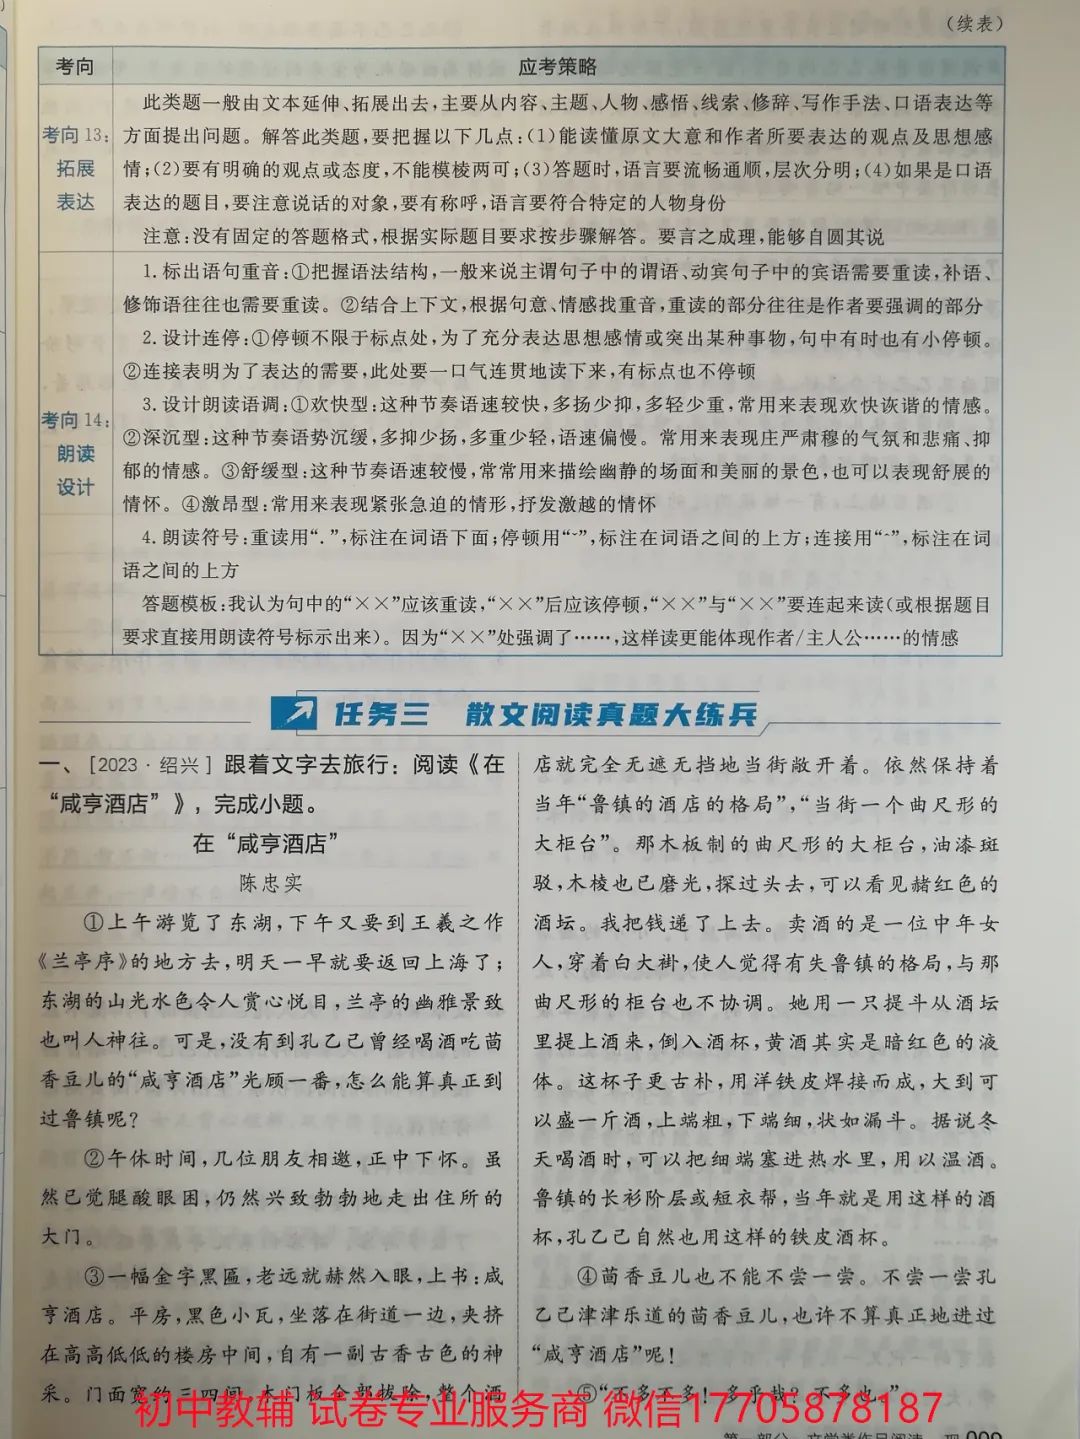 （续表）
考向
应考策略
考向 13：
拓展
表达
此类题一般由文本延伸、拓展出去，主要从内容、主题、人物、感悟、线索、修辞、写作手法、口语表达等
方面提出问题。解答此类题，要把握以下几点：(1)能读懂原文大意和作者所要表达的观点及思想感
情；(2)要有明确的观点或态度，不能模棱两可；(3)答题时，语言要流畅通顺，层次分明；(4)如果是口语
表达的题目，要注意说话的对象，要有称呼，语言要符合特定的人物身份
注意：没有固定的答题格式，根据实际题目要求按步骤解答。要言之成理，能够自圆其说
考向 14：
朗读
设计
1. 标出语句重音：①把握语法结构，一般来说主谓句子中的谓语、动宾句子中的宾语需要重读，补语、
修饰语往往也需要重读。②结合上下文，根据句意、情感找重音，重读的部分往往是作者要强调的部分
2. 设计连停：①停顿不限于标点处，为了充分表达思想感情或突出某种事物，句中有时也有小停顿。
②连接表明为了表达的需要，此处要一口气连贯地读下来，有标点也不停顿
3. 设计朗读语调：①欢快型：这种节奏语速较快，多扬少抑，多轻少重，常用来表现欢快诙谐的情感。
②深沉型：这种节奏语势沉缓，多抑少扬，多重少轻，语速偏慢。常用来表现庄严肃穆的气氛和悲痛、抑
郁的情感。③舒缓型：这种节奏语速较慢，常常用来描绘幽静的场面和美丽的景色，也可以表现舒展的
情怀。④激昂型：常用来表现紧张急迫的情形，抒发激越的情怀
4. 朗读符号：重读用“．”，标注在词语下面；停顿用“ˇ”，标注在词语之间的上方；连接用“ˆ”，标注在词
语之间的上方
答题模板：我认为句中的“××”应该重读，“××”后应该停顿，“××”与“××”要连起来读(或根据题目
要求直接用朗读符号标示出来)。因为“××”处强调了……，这样读更能体现作者/主人公……的情感
任务三 散文阅读真题大练兵
一、[2023·绍兴] 跟着文字去旅行：阅读《在
“咸亨酒店”》，完成小题。
在“咸亨酒店”
陈忠实
①上午游览了东湖，下午又要到王羲之作
《兰亭序》的地方去，明天一早就要返回上海了；
东湖的山光水色令人赏心悦目，兰亭的幽雅景致
也叫人神往。可是，没有到孔乙己曾经喝酒吃茴
香豆儿的“咸亨酒店”光顾一番，怎么能算真正到
过鲁镇呢？
②午休时间，几位朋友相邀，正中下怀。虽
然已觉腿酸眼困，仍然兴致勃勃地走出住所的
大门。
③一幅金字黑匾，老远就赫然入眼，上书：咸
亨酒店。平房，黑色小瓦，坐落在街道一边，夹挤
在高高低低的楼房中间，自有一副古香古色的神
采。门面宽约三四间，木门板全部拔除，整个酒
店就完全无遮无挡地当街敞开着。依然保持着
当年“鲁镇的酒店的格局”，“当街一个曲尺形的
大柜台”。那木板制的曲尺形的大柜台，油漆斑
驳，木棱也已磨光，探过头去，可以看见赭红色的
酒坛。我把钱递了上去。卖酒的是一位中年女
人，穿着白大褂，使人觉得有失鲁镇的格局，与那
曲尺形的柜台也不协调。她用一只提斗从酒坛
里提上酒来，倒入酒杯，黄酒其实是暗红色的液
体。这杯子更古朴，用洋铁皮焊接而成，大到可
以盛一斤酒，上端粗，下端细，状如漏斗。据说冬
天喝酒时，可以把细端塞进热水里，用以温酒。
鲁镇的长衫阶层或短衣帮，当年就是用这样的酒
杯，孔乙己自然也用这样的铁皮酒杯。
④茴香豆儿也不能不尝一尝。不尝一尝孔
乙己津津乐道的茴香豆儿，也许不算真正地进过
“咸亨酒店”呢！
⑤“不多不多！多乎哉？不多也。”
初中教辅 试卷专业服务商 微信17705878187